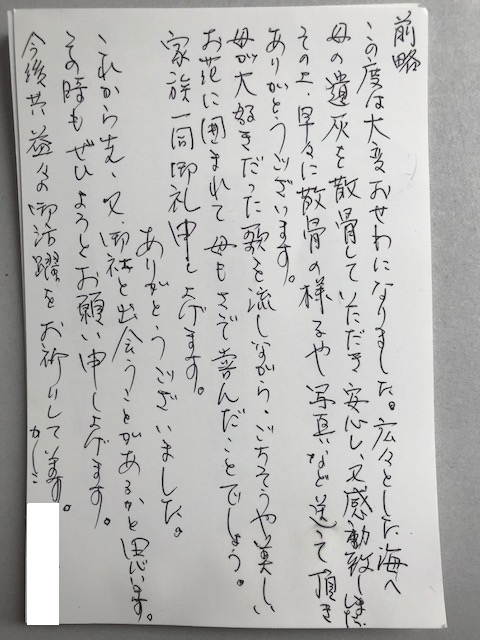 前略
この度は大変おせわになりました。広々とした海へ
母の遺灰を散骨していただき安心し、又感動致しました
その上、早々に散骨の様子や写真など送って頂き
ありがとうございます。
母が大好きだった歌を流しながら、ごちそうや美しい
お花に囲まれて母もさぞ喜んだことでしょう。
家族一同御礼申し上げます。
ありがとうございました。
これから先、又、御社と出会うことがあるかと思います。
その時もぜひよろしくお願い申し上げます。
今後共益々の御活躍をお祈りしています。
かしこ